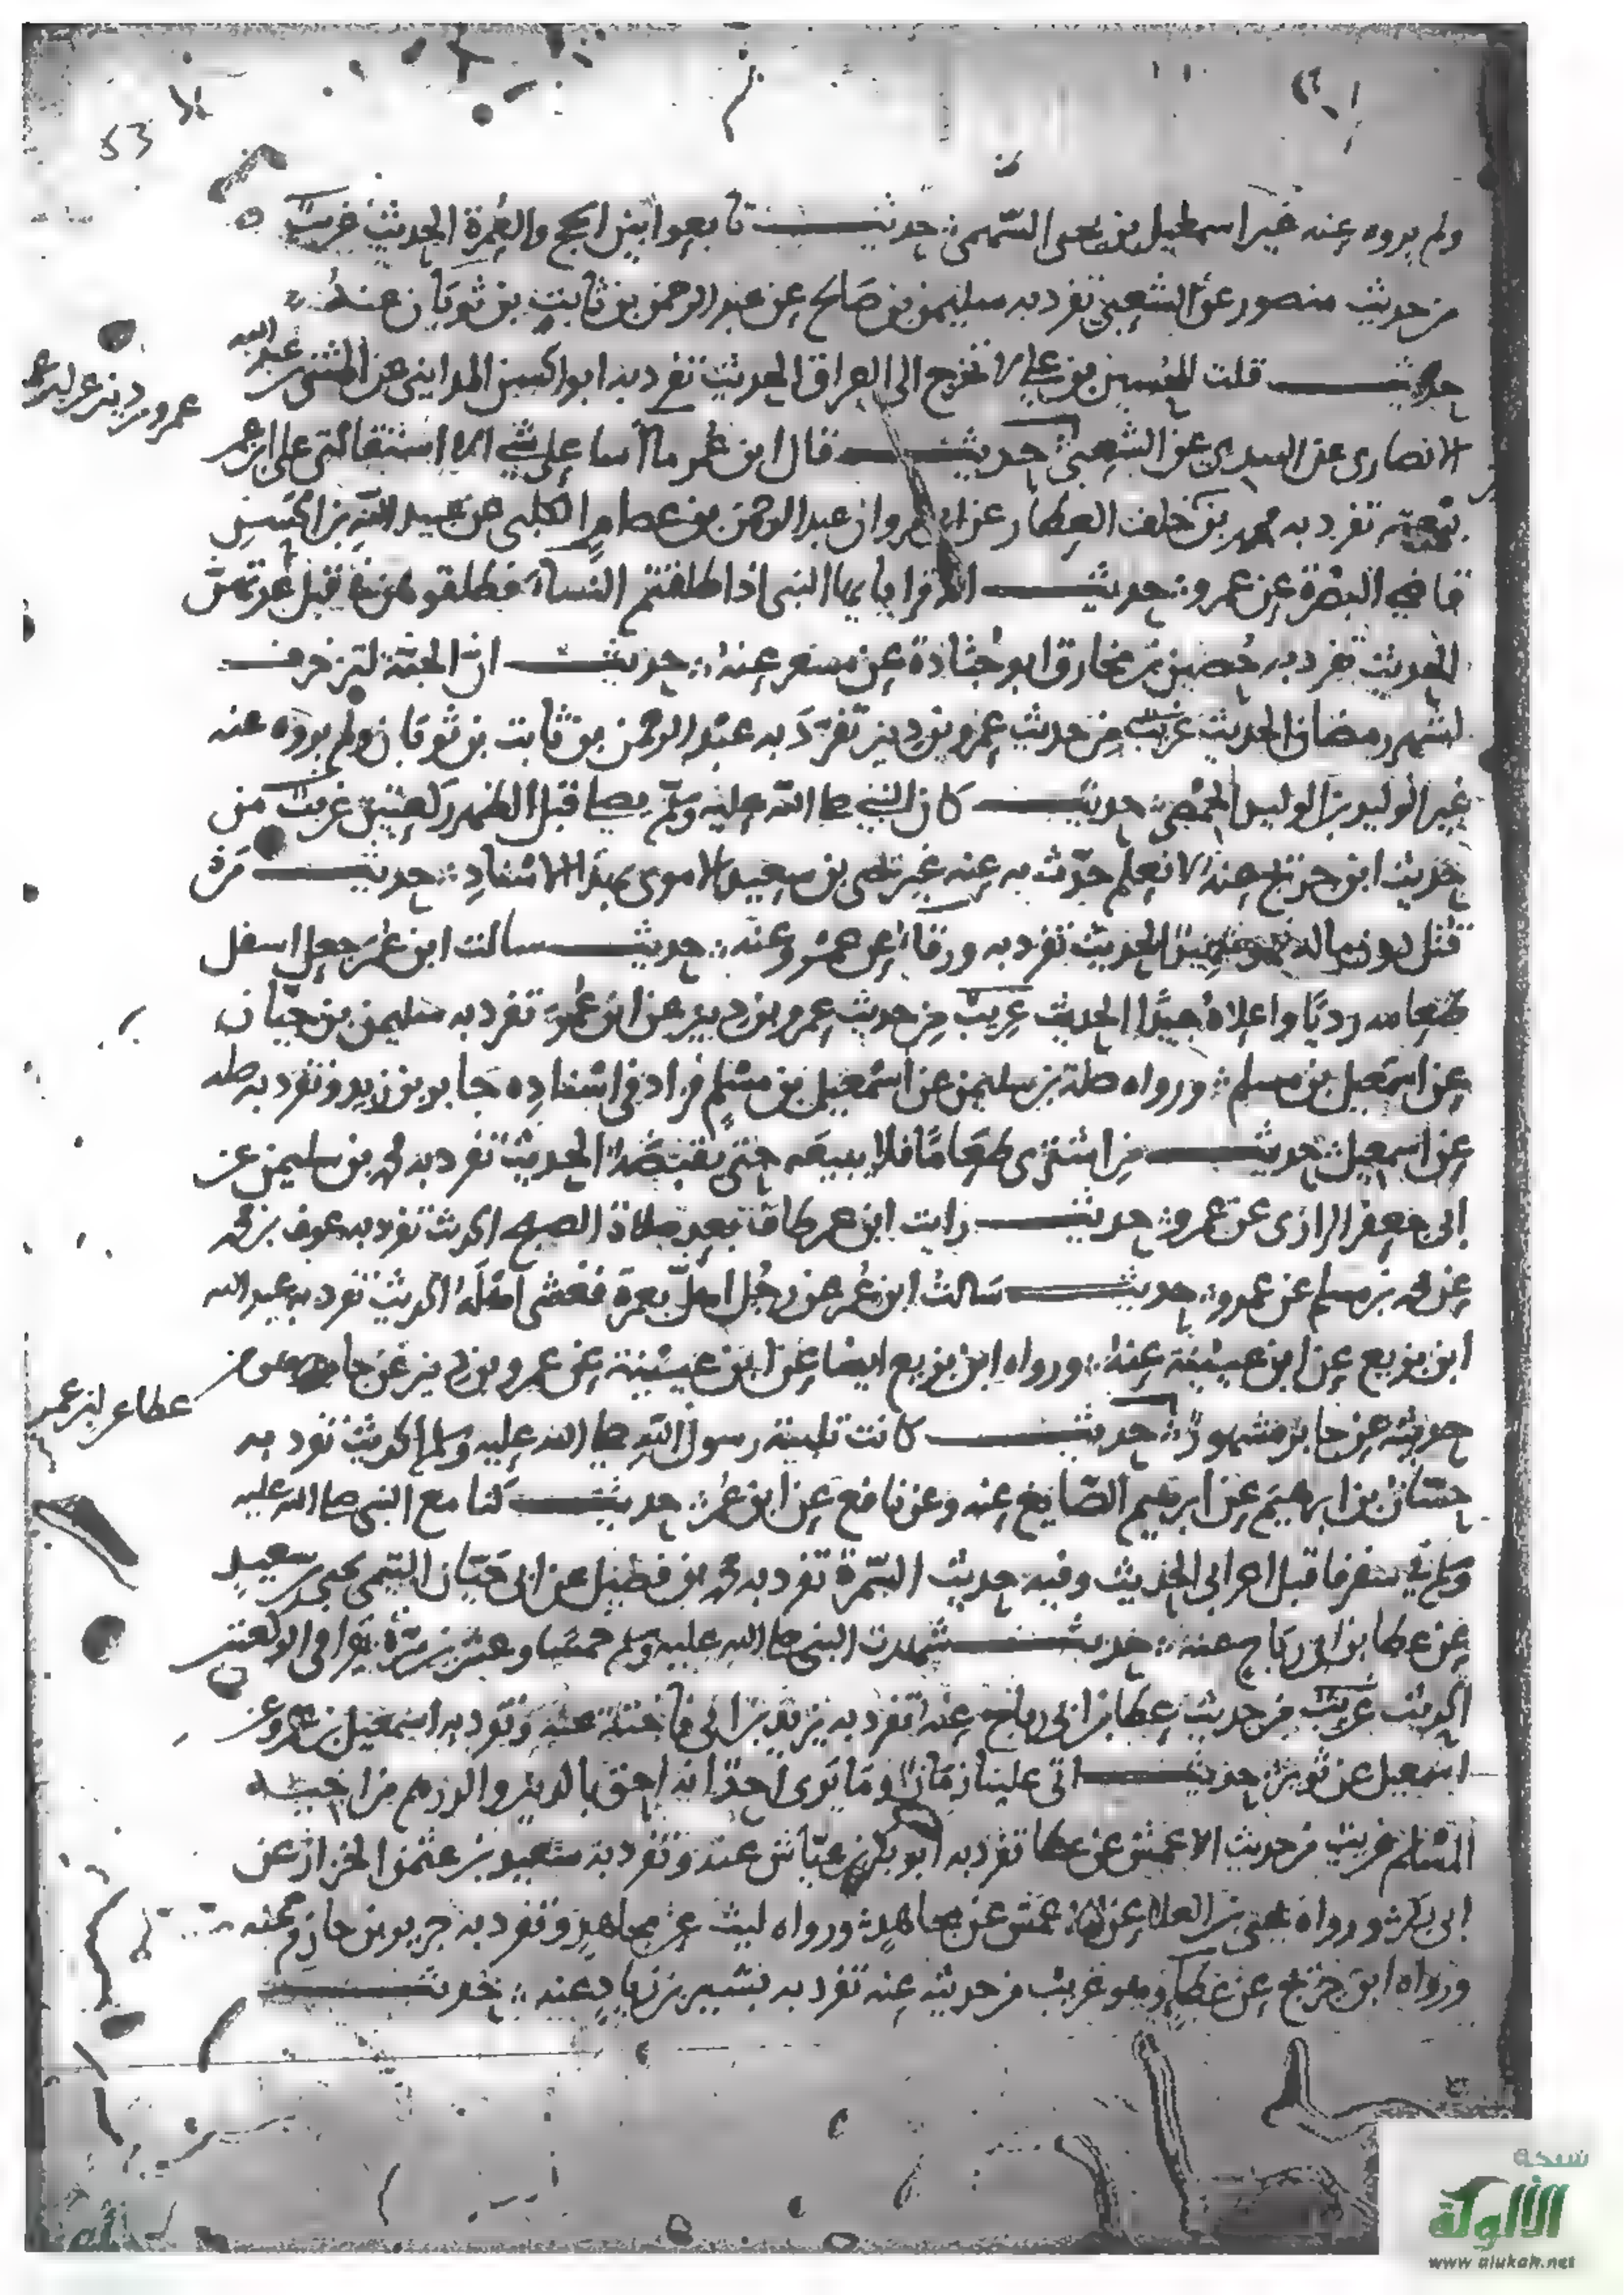 53
ولم يروه عنه غير اسمعيل بن يحيى السهمي حديث تابعوا بين الحج والعمرة الحديث غريب
من حديث منصور عن الشعبي تفرد به سليمن بن صالح عن عبد الرحمن بن ثابت بن ثوبان عنه
حديث قلت للحسين بن علي لا تخرج الى العراق الحديث تفرد به ابو الحسن المدايني عن المثنى عبد الله
عمرو بن دينر عن ابن عمر
الانصاري عن السدي عن الشعبي حديث قال ابن عمر ما اسا على شي الا استقالتي على ابن عمر
تفرد به محمد بن خلف العطار عن عبد الرحمن بن الكلبي عن عبيد الله بن الحسن
قاضي البصرة عن عمرو حديث انه قرا يايها النبي اذا طلقتم النساء فطلقوهن في قبل عدتهن
الحديث تفرد به حصين بن مخارق ابو جنادة عن مسعر عنه حديث ان الجنة لتزخرف
لشهر رمضان الحديث غريب من حديث عمرو بن دينر تفرد به عبد الرحمن بن ثابت بن ثوبان ولم يروه عنه
غير الوليد بن الوليد الحمصي حديث كان النبي صلى الله عليه وسلم يصلي قبل الظهر ركعتين غريب من
حديث ابن جريج عنه لا نعلم حدث به عنه غير يحيى بن سعيد الاموي بهذا الاسناد حديث من
قتل دون ماله فهو شهيد الحديث تفرد به ورقاء عن عمرو عنه حديث سالت ابن عمر جعل اسفل
طعامه رديا واعلاه جيدا الحديث غريب من حديث عمرو بن دينر عن ابن عمر تفرد به سليمن بن حيان
عن اسمعيل بن مسلم ورواه طلة بن سليمن عن اسمعيل بن مسلم فزاد في اسناده جابر بن زيد وتفرد به طلة
عن اسمعيل حديث من اشترى طعاما فلا يبيعه حتى يقبضه الحديث تفرد به محمد بن سليمن عن
ابي جعفر الرازي عن عمرو حديث رايت ابن عمر طاف بعد صلاة الصبح الحديث تفرد به عوف بن محمد
عن محمد بن مسلم عن عمرو حديث سالت ابن عمر عن رجل اهل بعمرة فغشى اهله الحديث تفرد به عبد الله
ابن بزيع عن ابن عيينة عنه ورواه ابن بزيع ايضا عن ابن عيينة عن عمرو بن دينر عن جابر من
عطا عن ابن عمر
حديثه عن جابر مشهور حديث كانت تلبية رسول الله صلى الله عليه وسلم الحديث تفرد به
حسان بن ابرهيم عن ابرهيم الصايغ عنه وعن نافع عن ابن عمر حديث كنا مع النبي صلى الله عليه
وسلم في سفر فاقبل اعرابي الحديث وفيه حديث السمرة تفرد به محمد بن فضيل عن ابي حيان التيمي يحيى بن سعيد
عن عطا بن ابي رباح عنه حديث شهدت النبي صلى الله عليه وسلم خمسا وعشرين مرة يقرا في الركعتين
الحديث غريب من حديث عطا بن ابي رباح عنه تفرد به بن ابي فاختة عنه وتفرد به اسمعيل بن عمرو عن
اسمعيل عن ثوير حديث اتى علينا زمان وما يرى احدا انه احق بالدينر والدرهم من اخيه
المسلم غريب من حديث الاعمش عن عطا تفرد به ابو بكر بن عياش عنه وتفرد به سعيد بن عثمن الخزاز عن
ابي بكر ورواه يحيى بن العلاء عن الاعمش عن مجاهد ورواه ليث عن مجاهد وتفرد به جرير بن حازم عنه
ورواه ابن جريج عن عطا وهو غريب من حديثه عنه تفرد به بشير بن زياد عنه حديث
شبكة
الألوكة
www.alukah.net